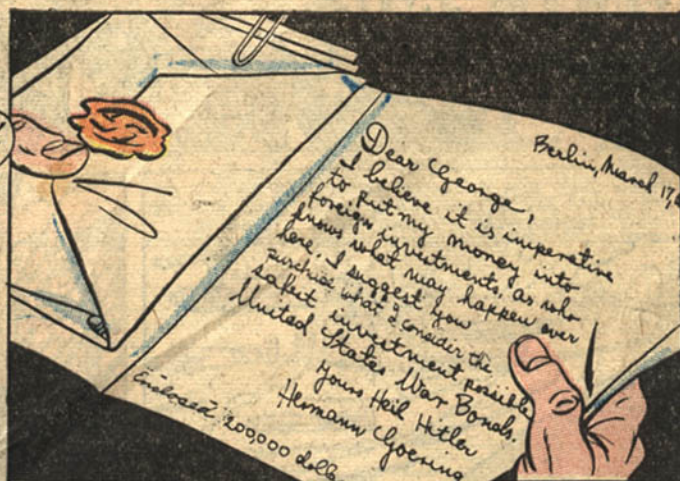 Berlin, March 17,
Dear George,
I believe it is imperative
to put my money into
foreign investments, as who
knows what may happen over
here. I suggest you
purchase what I consider the
safest investment possible
United States War Bonds.
Yours Heil Hitler
Hermann Goering
Enclosed 200,000 dolls